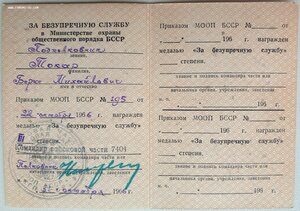 ЗА БЕЗУПРЕЧНУЮ СЛУЖБУ
в Министерстве охраны
общественного порядка БССР
Подполковник
звание,
Токар
фамилия,
Михайлович
имя и отчество
Приказом МООП БССР № 195 от
октября 1966 г. награжден
медалью «За безупречную службу»
III степени.
Командир войсковой части 7404
звание и подпись командира части или
Полковник
октября 1966 г.
Приказом МООП БССР № от
196 г. награжден
медалью «За безупречную службу»
степени.
звание и подпись командира части или
начальника органа, учреждения, заведения
196 г.
Приказом МООП БССР № от
196 г. награжден
медалью «За безупречную службу»
степени.
звание и подпись командира части или
начальника органа, учреждения, заведения
196 г.